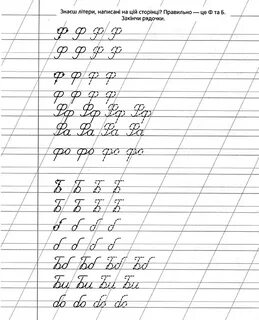 Знаєш літери, написані на цій сторінці? Правильно — це Ф та Б.
Закінчи рядочки.
Ф Ф Ф Ф
Ф Ф Ф Ф
ф ф ф ф
ф ф ф ф
Фр Фр Фр Фр
Фа Фа Фа Фа
фо фо фо фо
Б Б Б Б
Б Б Б Б
б б б б
б б б б
Бб Бб Бб Бб
Би Би Би Би
бо бо бо бо